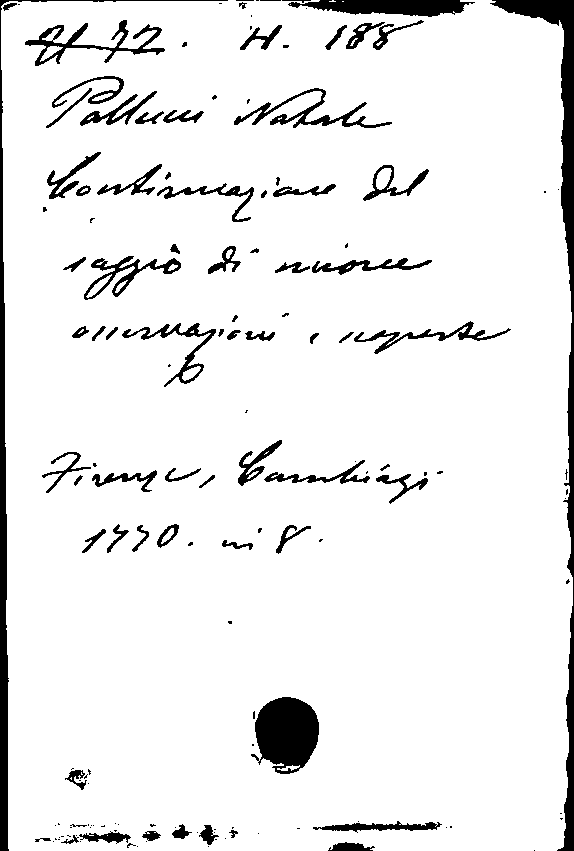 H 72. H. 188
Pallucci Natale
Continuazione del
saggio di nuove
osservazioni e scoperte
Firenze, Cambiagi
1770. in 8.